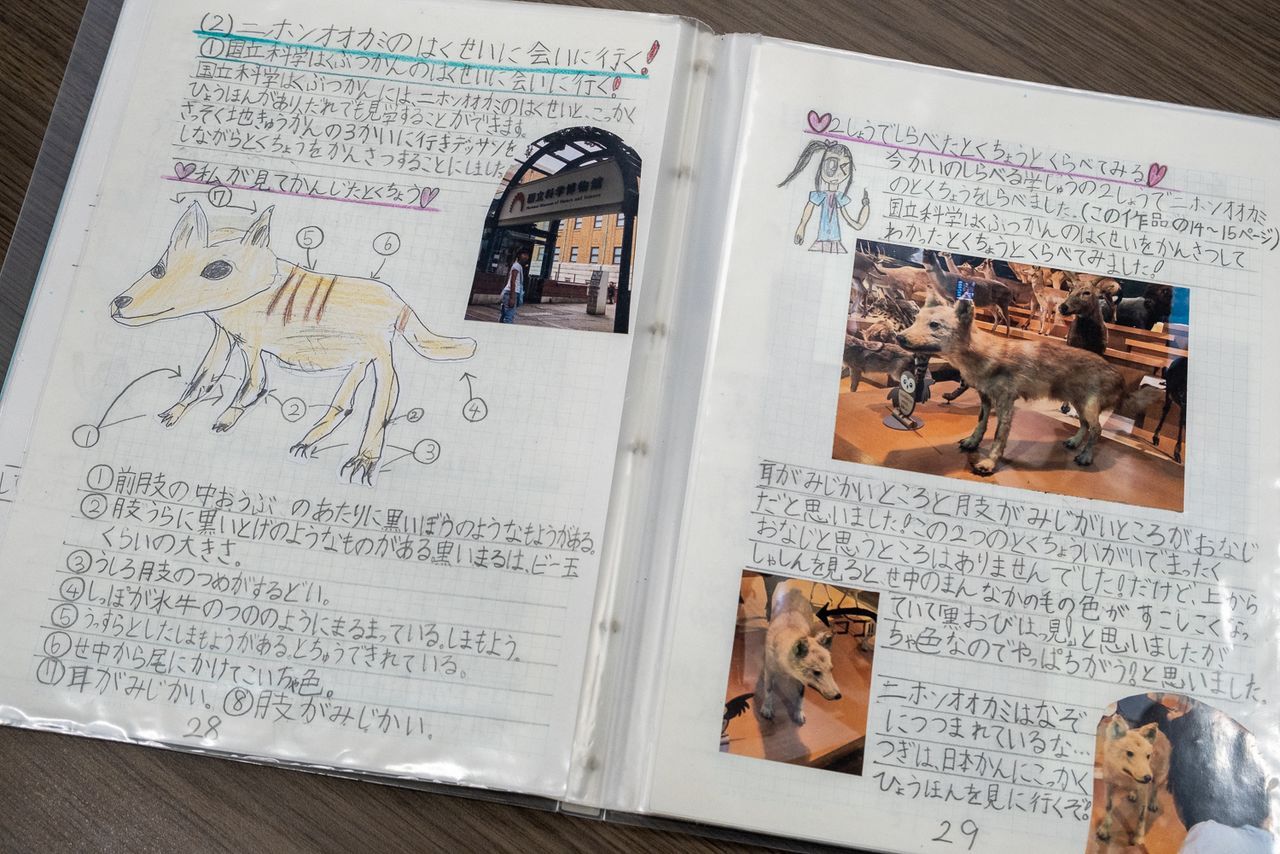 (2) ニホンオオカミのはくせいに会いに行く!
①国立科学はくぶつかんのはくせいに会いに行く!
国立科学はくぶつかんには、ニホンオオカミのはくせいと、こっかく
ひょうほんがあり、だれでも見学することができます。
さっそく地きゅうかんの3かいに行きデッサンを
しながらとくちょうをかんさつすることにしました。
♡私が見てかんじたとくちょう♡
国立科学博物館
National Museum of Nature and Science
⑦
⑤
⑥
①
②
②
③
④
①前肢の中おうぶのあたりに黒いぼうのようなもようがある。
②肢うらに黒いとげのようなものがある。黒いまるは、ビー玉
くらいの大きさ。
③うしろ肢のつめがするどい。
④しっぽが水牛のつののようにまるまっている。しまもよう。
⑤うっすらとしたしまもようがある。とちゅうできれている。
⑥せ中から尾にかけてこいちゃ色。
⑦耳がみじかい。⑧肢がみじかい。
28
♡2しょうでしらべたとくちょうとくらべてみる♡
今かいのしらべる学しゅうの2しょうでニホンオオカミ
のとくちょうをしらべました。(この作品の14~15ページ)
国立科学はくぶつかんのはくせいをかんさつして
わかたとくちょうとくらべてみました!
耳がみじかいところと肢がみじがいところがおなじ
だと思いました!この2つのとくちょういがいで、まったく
おなじと思うところはありませんでした!だけど、上から
しゃしんを見ると、せ中のまんなかの毛の色がすこしこくなっ
ていて「黒おびはっ見!」と思いましたが
ちゃ色なのでやっぱちがう?と思いました。
ニホンオオカミはなぞ
につつまれているな…
つぎは、日本かんにこっかく
ひょうほんを見に行くぞ!
29